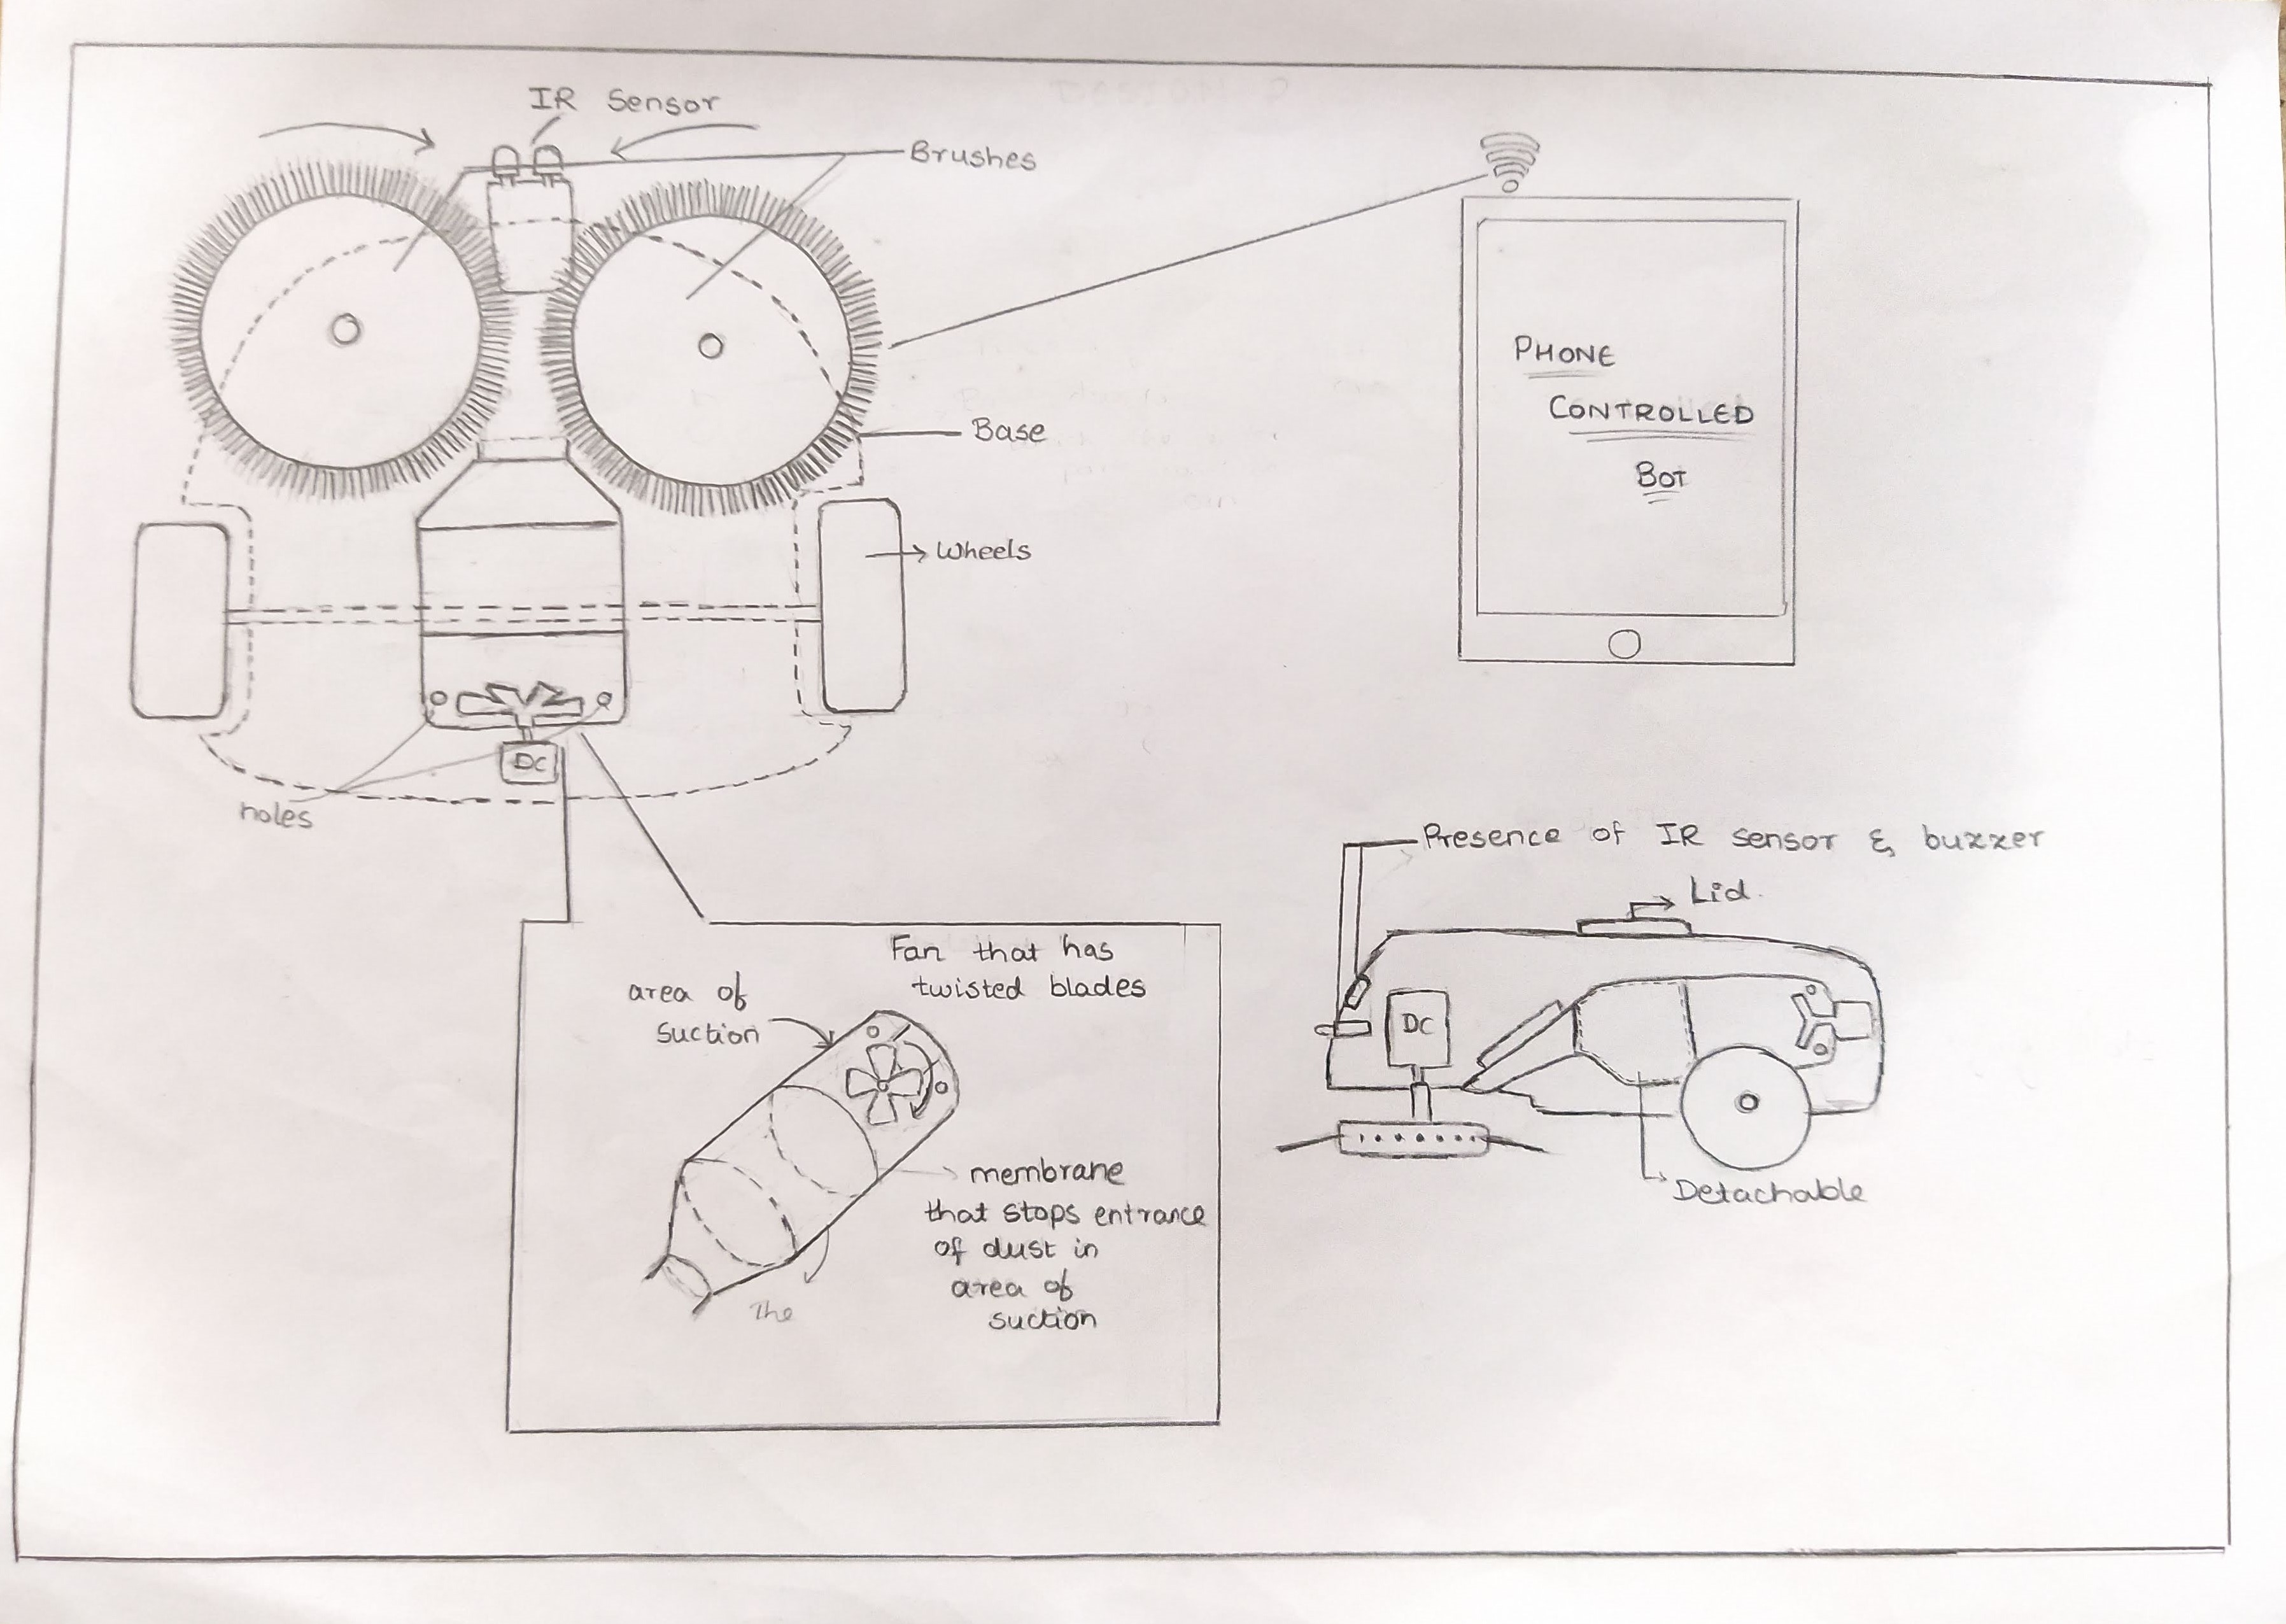 IR Sensor
Brushes
Base
Wheels
DC
holes
PHONE
CONTROLLED
BOT
Fan that has
twisted blades
area of
suction
membrane
that stops entrance
of dust in
area of
suction
The
Presence of IR sensor & buzzer
Lid
DC
Detachable